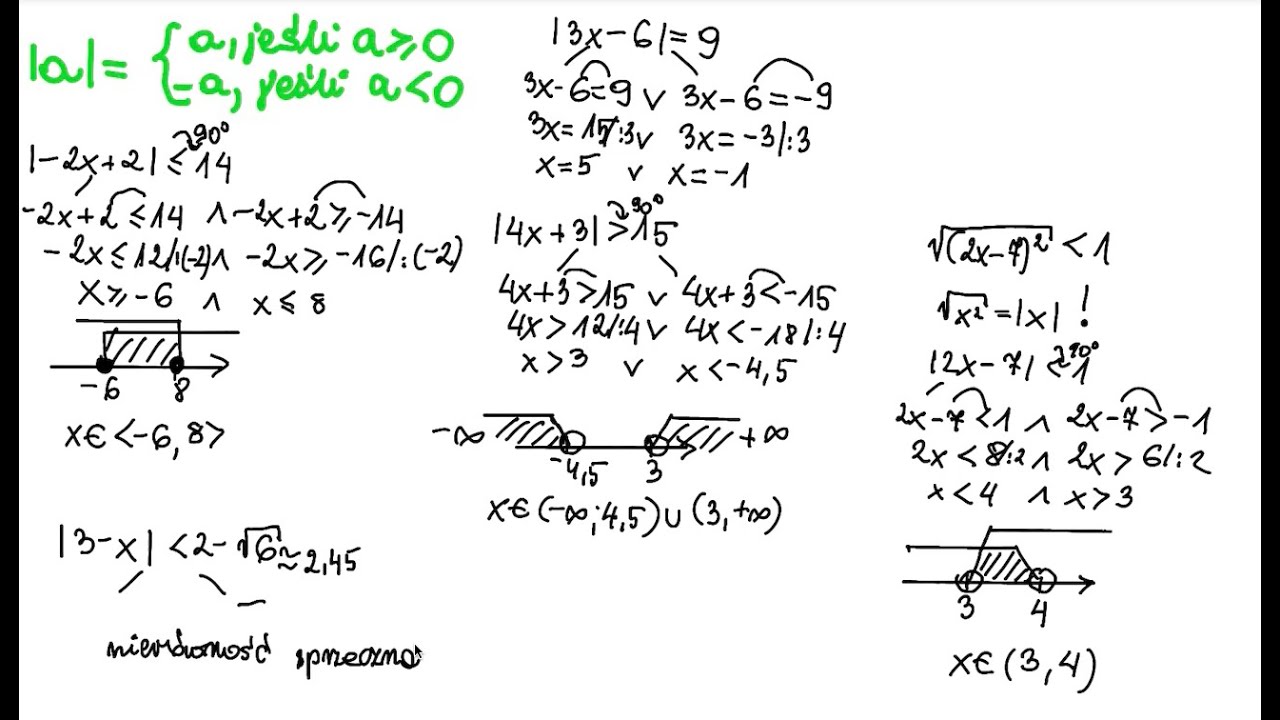 |a| = { a, jeśli a ⩾ 0
-a, jeśli a < 0
|-2x+2| ≤ 14 90°
-2x+2 ≤ 14 ∧ -2x+2 ⩾ -14
-2x ≤ 12 /:(-2) ∧ -2x ⩾ -16 /:(-2)
x ⩾ -6 ∧ x ≤ 8
-6 8
x∈<-6, 8>
|3-x| < 2-√6 ≈ 2,45
–
nierówność sprzeczna
|3x-6| = 9
3x-6=9 ∨ 3x-6=-9
3x=15/:3 ∨ 3x=-3/:3
x=5 ∨ x=-1
|4x+3| > 15 90°
4x+3>15 ∨ 4x+3<-15
4x>12/:4 ∨ 4x<-18/:4
x>3 ∨ x<-4,5
-∞ +∞
-4,5 3
x∈(-∞;4,5)∪(3,+∞)
√(2x-7)² < 1
√x² = |x| !
|2x-7| < 1 90°
2x-7<1 ∧ 2x-7>-1
2x<8/:2 ∧ 2x>6/:2
x<4 ∧ x>3
3 4
x∈(3,4)